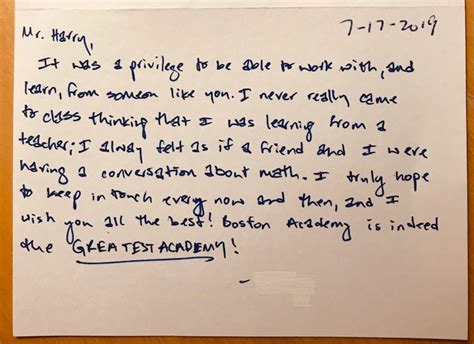 7-17-2019
Mr. Harry,
It was a privilege to be able to work with, and
learn, from someon like you. I never really came
to class thinking that I was learning from a
teacher; I alway felt as if a friend and I were
having a conversation about math. I truly hope
to keep in touch every now and then, and I
wish you all the best! Boston Academy is indeed
the GREATEST ACADEMY!
-